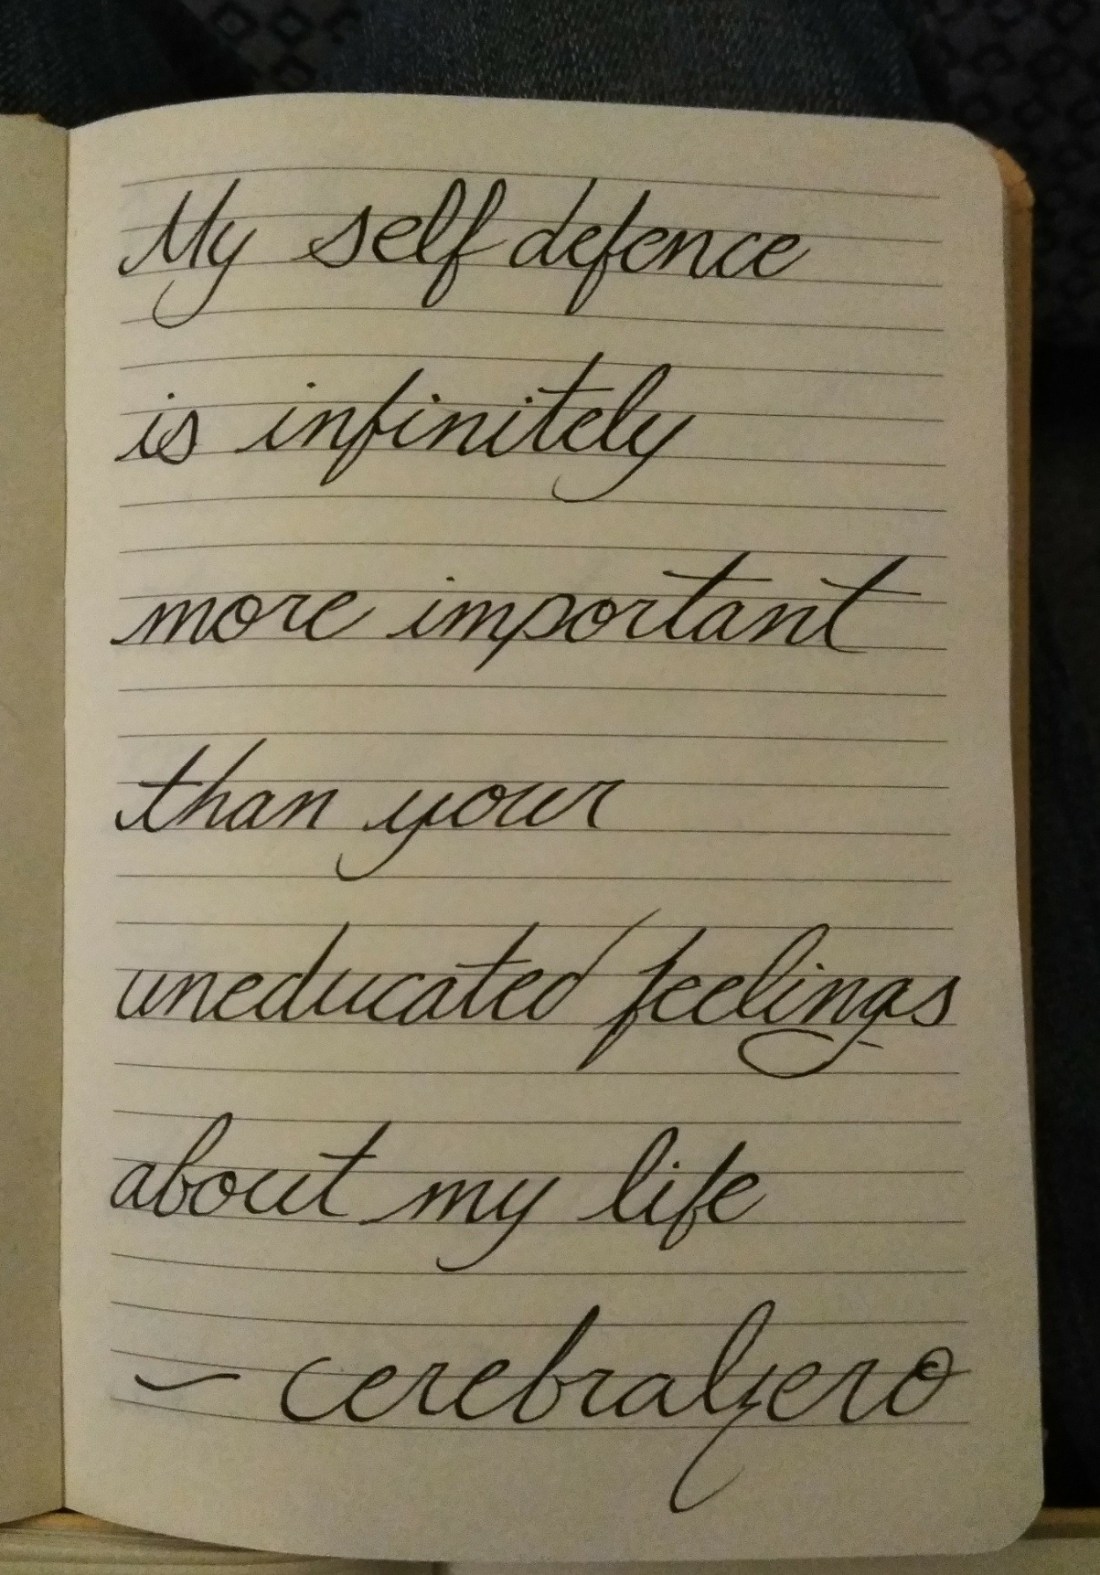 My self defence
is infinitely
more important
than your
uneducated feelings
about my life
– cerebralzero